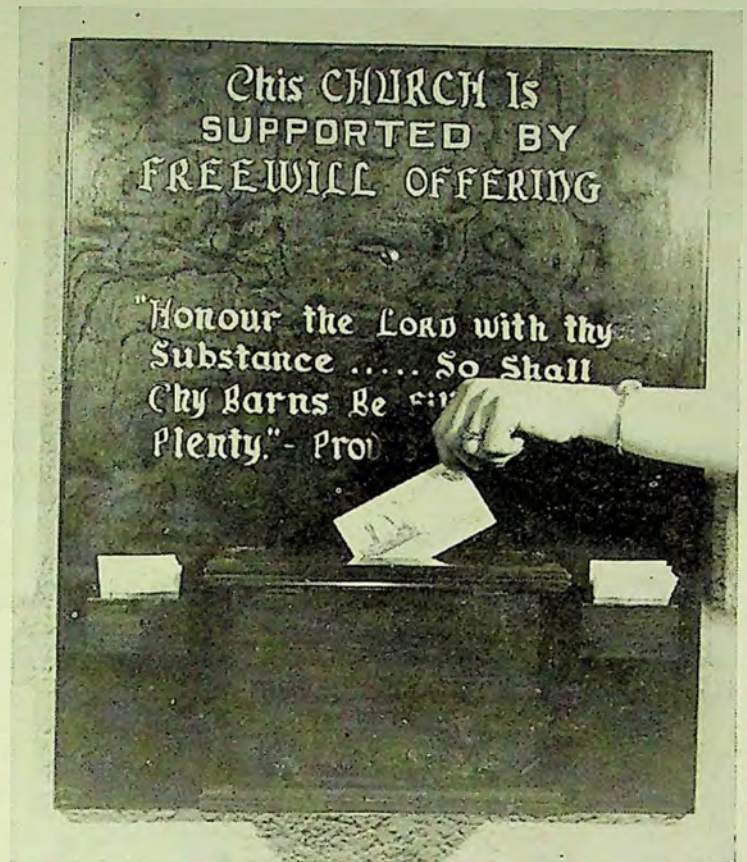 This CHURCH Is
SUPPORTED BY
FREEWILL OFFERING
"Honour the LORD with thy
Substance ..... So Shall
Thy Barns Be
Plenty."- Prov